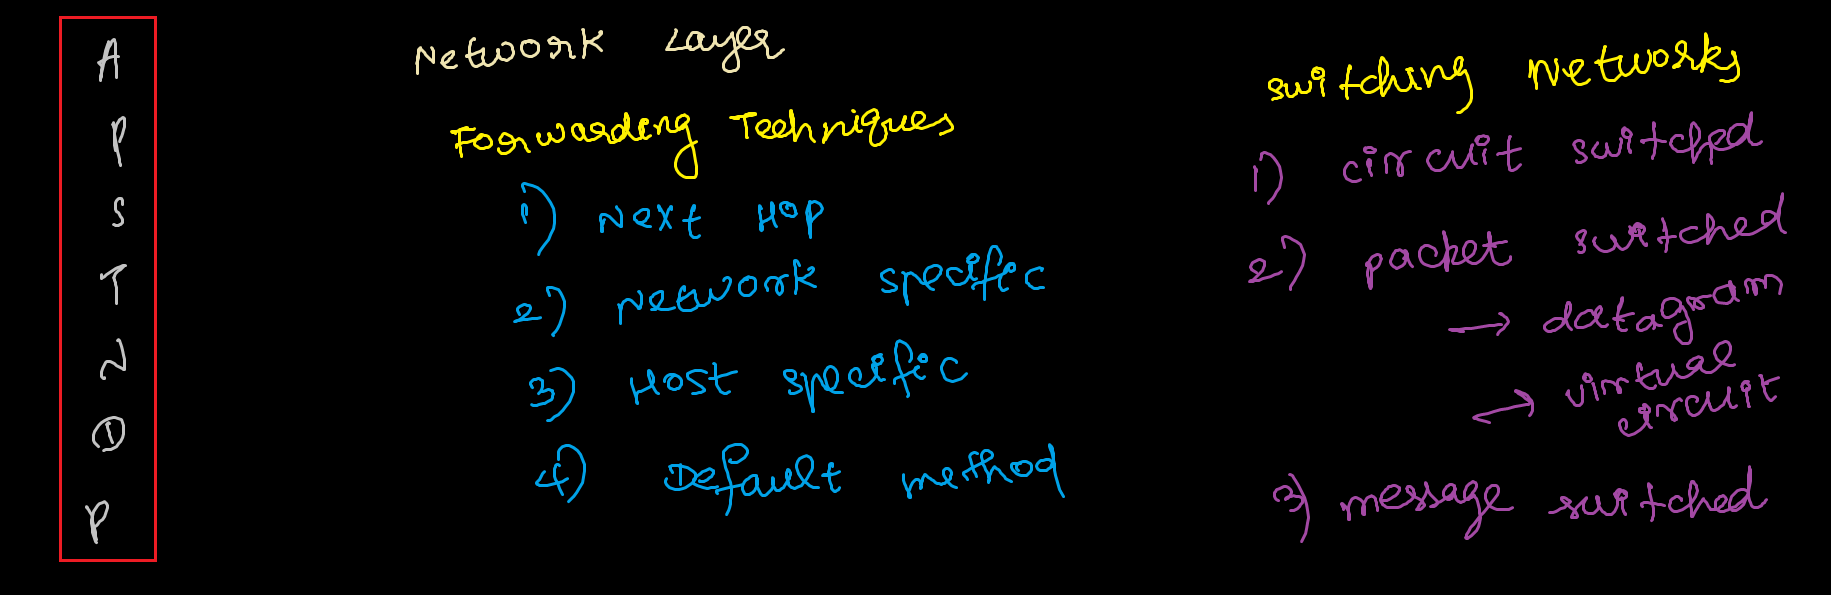 A
P
S
T
N
D
P
Network Layer
Forwarding Techniques
1) Next Hop
2) Network specific
3) Host specific
4) Default method
switching Networks
1) circuit switched
2) packet switched
→ datagram
→ virtual
circuit
3) message switched